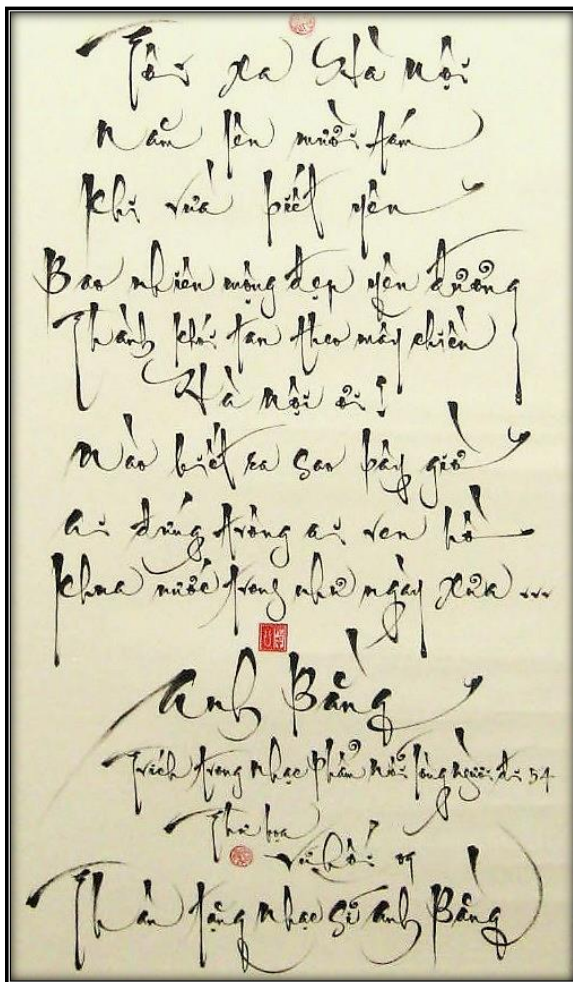 Tôi xa Hà Nội
Năm lên mười tám
khi vừa biết yêu
Bao nhiêu mộng đẹp yêu đương
Thành khói tan theo mây chiều
Hà Nội ơi!
Nào biết ra sao bây giờ
Ai đứng trông ai ven hồ
khua nước trong như ngày xưa ...
Anh Bằng
Trích trong nhạc phẩm nỗi lòng người đi 54
Thư họa
Vũ Hối 09
Thân tặng nhạc sĩ Anh Bằng